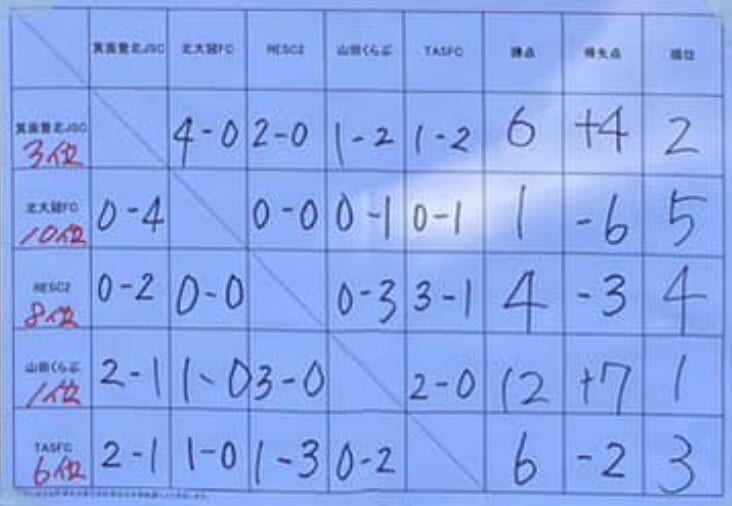 箕面豊北JSC 北大冠FC RESC2 山田くらぶ TASFC 勝点 得失点 順位
箕面豊北JSC 4-0 2-0 1-2 1-2 6 +4 2
3位
北大冠FC 0-4 0-0 0-1 0-1 1 -6 5
10位
RESC2 0-2 0-0 0-3 3-1 4 -3 4
8位
山田くらぶ 2-1 1-0 3-0 2-0 12 +7 1
1位
TASFC 2-1 1-0 1-3 0-2 6 -2 3
6位